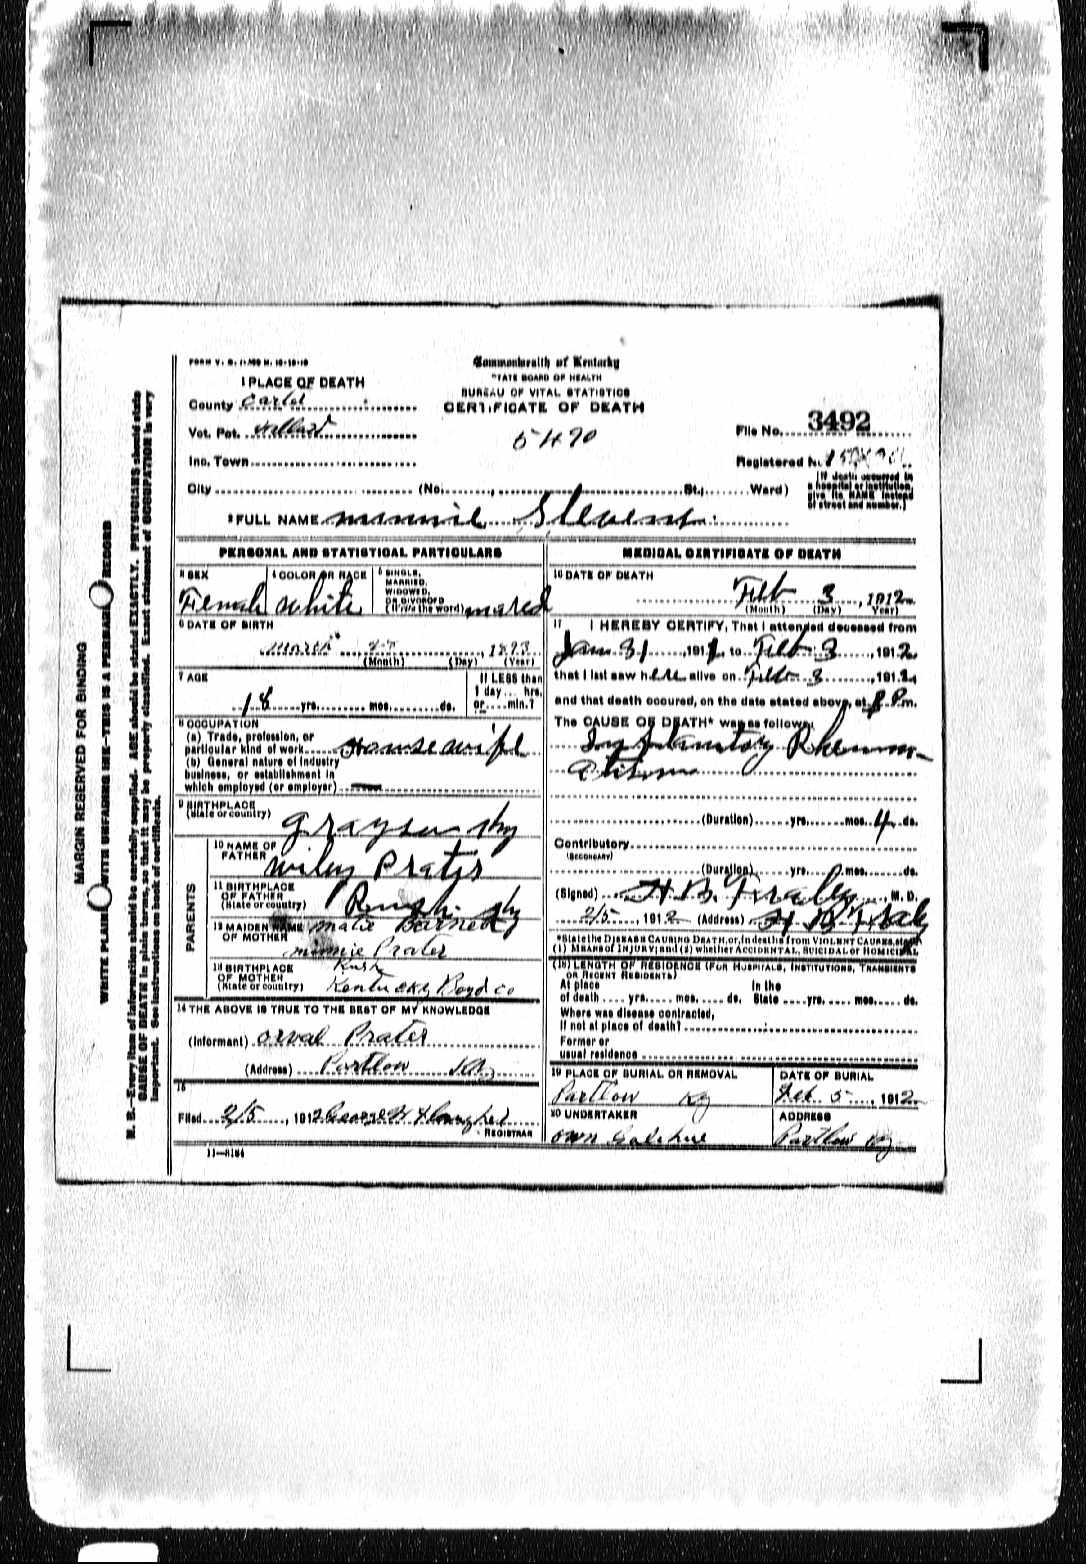 FORM V. S. 11-200 M. 10-18-10
Commonwealth of Kentucky
STATE BOARD OF HEALTH
BUREAU OF VITAL STATISTICS
CERTIFICATE OF DEATH
1 PLACE OF DEATH
County Carter
Vot. Pct. Willard
Inc. Town
City (No., St., Ward)
5470
File No. 3492
Registered No.
(If death occurred in a hospital or institution, give its NAME instead of street and number.)
2 FULL NAME minnie Stevens
PERSONAL AND STATISTICAL PARTICULARS
3 SEX Female
4 COLOR OR RACE white
5 SINGLE, MARRIED, WIDOWED, OR DIVORCED (Write the word) mared
6 DATE OF BIRTH
March 1893
(Month) (Day) (Year)
7 AGE
18 yrs. mos. ds.
If LESS than 1 day... hrs. or... min.?
8 OCCUPATION
(a) Trade, profession, or particular kind of work Housewife
(b) General nature of industry business, or establishment in which employed (or employer)
9 BIRTHPLACE (State or country) Grayson Ky
PARENTS
10 NAME OF FATHER Wiley Prater
11 BIRTHPLACE OF FATHER (State or country) Rush Ky
12 MAIDEN NAME OF MOTHER matie Barneby
minnie Prater
13 BIRTHPLACE OF MOTHER (State or country) Rush
Kentucky Boyd co
14 THE ABOVE IS TRUE TO THE BEST OF MY KNOWLEDGE
(Informant) orval Prater
(Address) Partlow Ky
15
Filed 2/5, 1912 George W
REGISTRAR
11—3184
MEDICAL CERTIFICATE OF DEATH
16 DATE OF DEATH
Feb 3, 1912
(Month) (Day) (Year)
17 I HEREBY CERTIFY, That I attended deceased from
Jan 31, 191 to Feb 3, 1912
that I last saw her alive on Feb 3, 1912
and that death occured, on the date stated above, at 8 P.m.
The CAUSE OF DEATH* was as follows:
Inflamatory Rheum-
atism
(Duration) yrs. mos. 4 ds.
Contributory
(SECONDARY)
(Duration) yrs. mos. ds.
(Signed) H. B. Fraley, M. D.
2/5, 1912 (Address) H B Fraley
*State the DISEASE CAUSING DEATH, or, in deaths from VIOLENT CAUSES, state
(1) MEANS OF INJURY; and (2) whether ACCIDENTAL, SUICIDAL or HOMICIDAL
(18) LENGTH OF RESIDENCE (FOR HOSPITALS, INSTITUTIONS, TRANSIENTS
OR RECENT RESIDENTS)
At place of death yrs. mos. ds. In the State yrs. mos. ds.
Where was disease contracted,
if not at place of death?
Former or
usual residence
19 PLACE OF BURIAL OR REMOVAL
Partlow Ky
DATE OF BURIAL
Feb. 5, 1912
20 UNDERTAKER
own
ADDRESS
Partlow Ky
MARGIN RESERVED FOR BINDING
WRITE PLAINLY WITH UNFADING INK—THIS IS A PERMANENT RECORD
N. B.—Every item of information should be carefully supplied. AGE should be stated EXACTLY. PHYSICIANS should state
CAUSE OF DEATH in plain terms, so that it may be properly classified. Exact statement of OCCUPATION is very
important. See instructions on back of certificate.